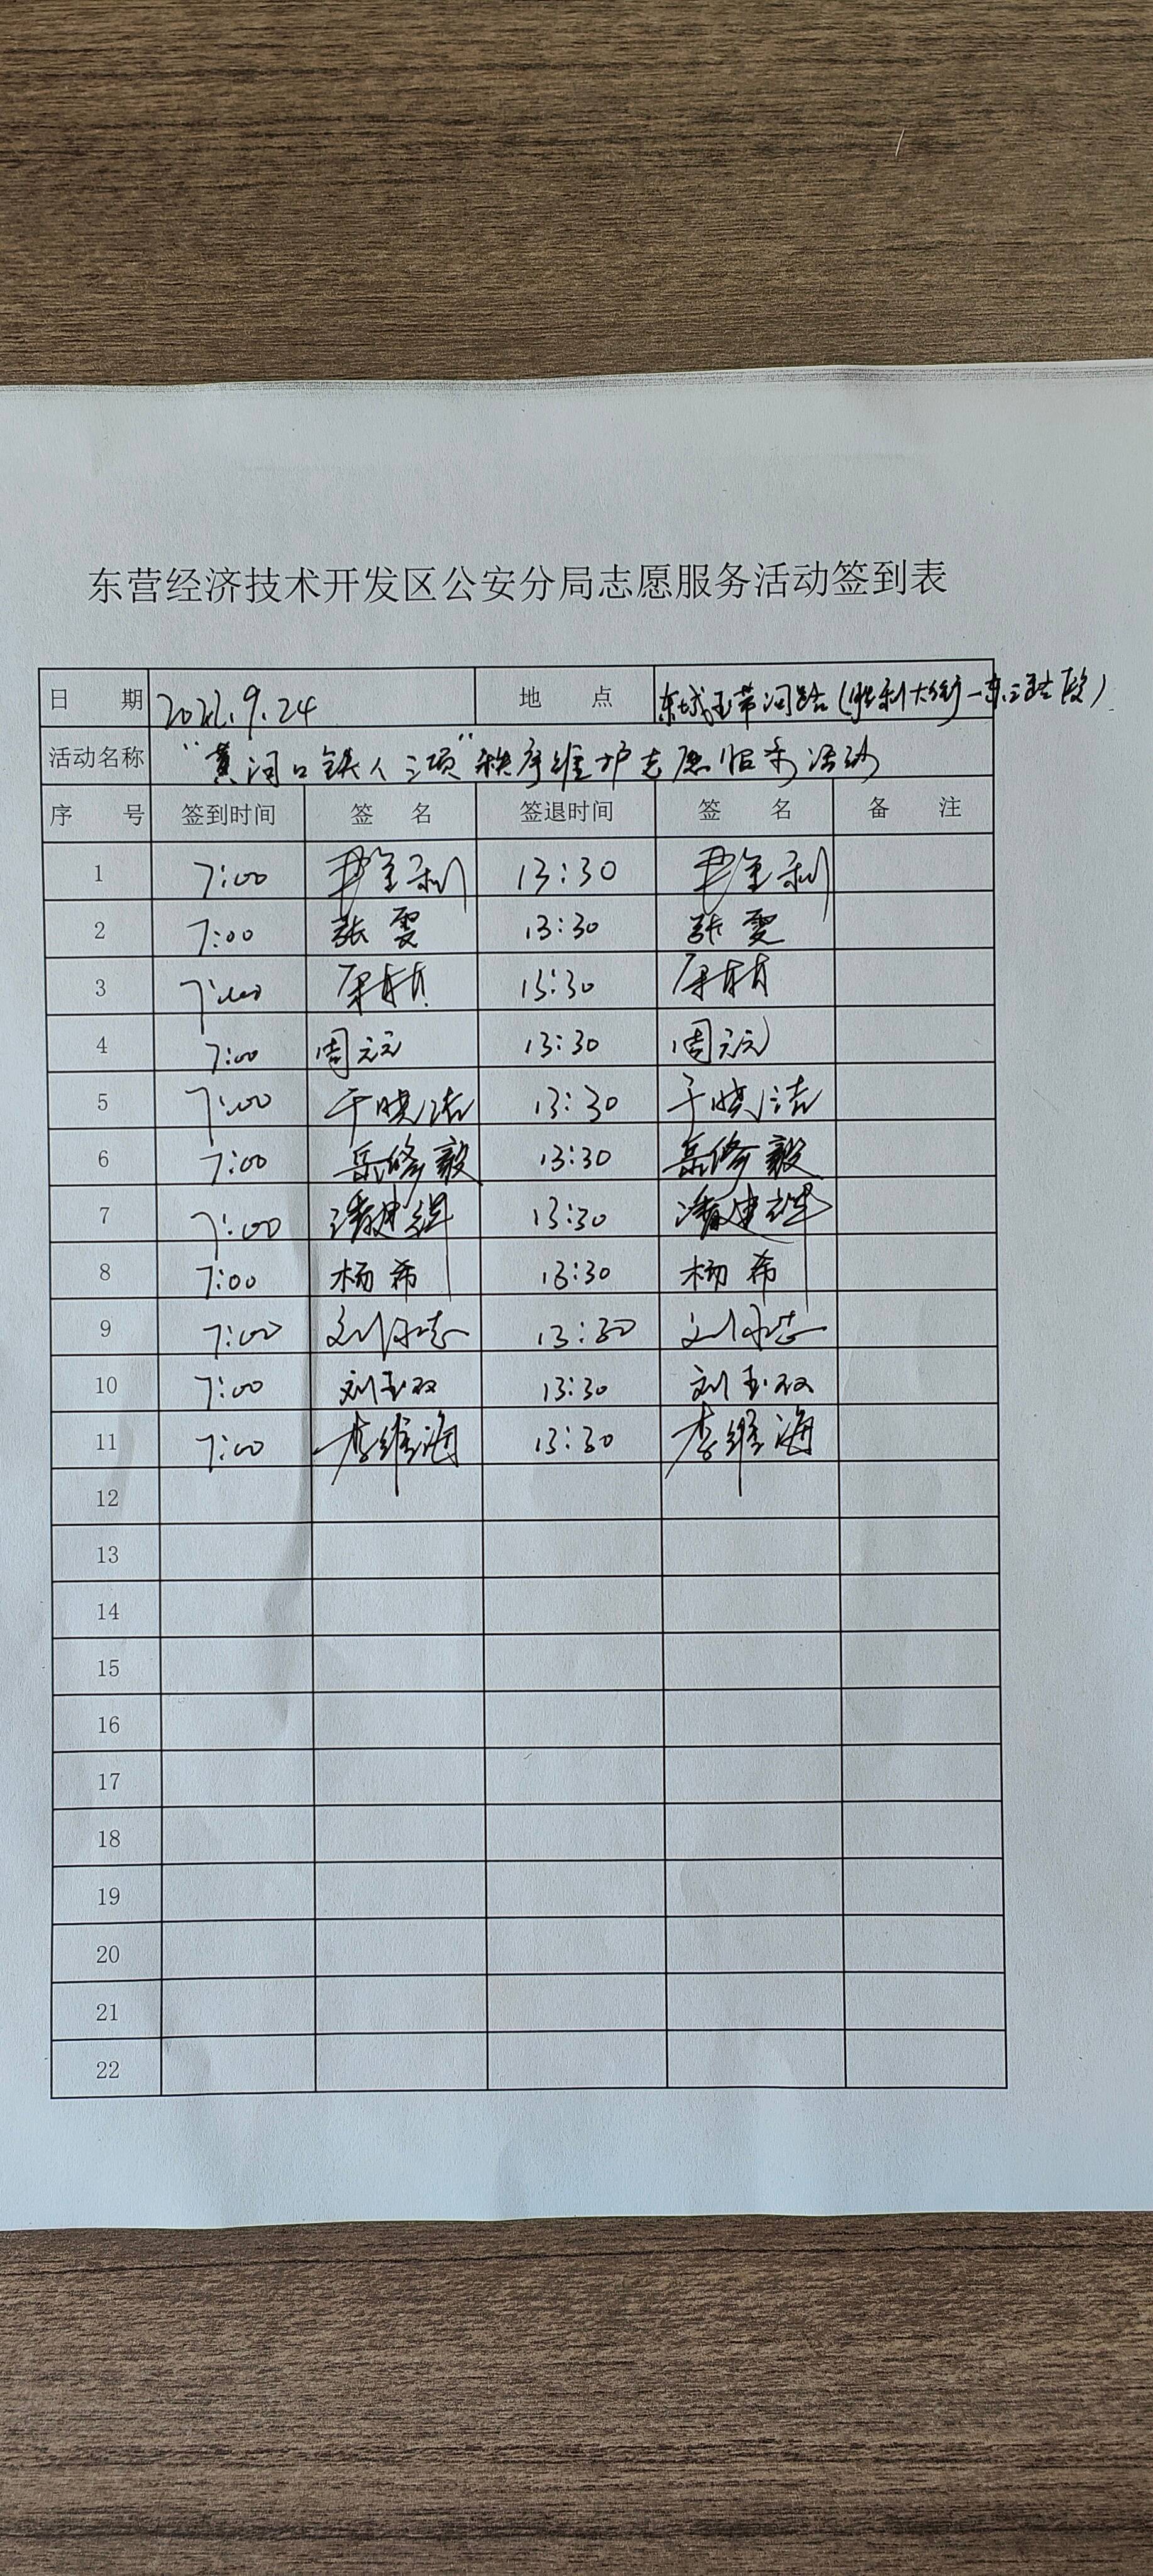 东营经济技术开发区公安分局志愿服务活动签到表
日 期 2022.9.24 地 点 东城玉带河路(胜利大街-东三路段)
活动名称 "黄河口铁人三项"秩序维护志愿服务活动
序 号 签到时间 签 名 签退时间 签 名 备 注
1 7:00 13:30
2 7:00 张雯 13:30 张雯
3 7:00 13:30
4 7:00 周元元 13:30 周元元
5 7:00 于晓洁 13:30 于晓洁
6 7:00 岳修毅 13:30 岳修毅
7 7:00 潘建辉 13:30 潘建辉
8 7:00 杨希 13:30 杨希
9 7:00 刘永志 13:30 刘永志
10 7:00 刘玉双 13:30 刘玉双
11 7:00 李维海 13:30 李维海
12
13
14
15
16
17
18
19
20
21
22